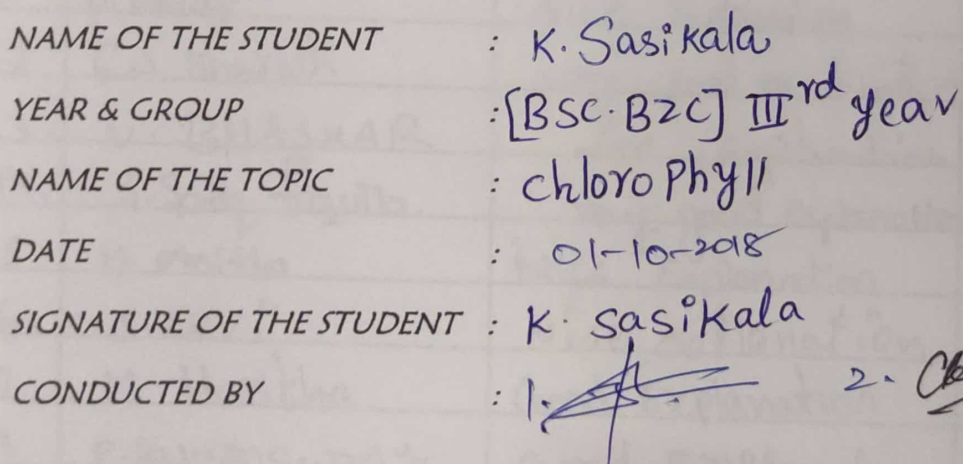 NAME OF THE STUDENT : K. Sasikala
YEAR & GROUP : [BSC. BZC] IIIrd year
NAME OF THE TOPIC : chlorophyll
DATE : 01-10-2018
SIGNATURE OF THE STUDENT : K. sasikala
CONDUCTED BY : 1. 2.